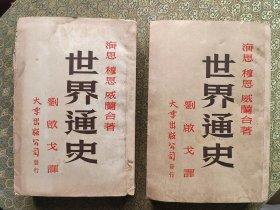 海思 穆恩 威蘭合著
世界通史
劉啟戈 譯
大孚出版公司 發行
海思 穆恩 威蘭合著
世界通史
劉啟戈 譯
大孚出版公司 發行